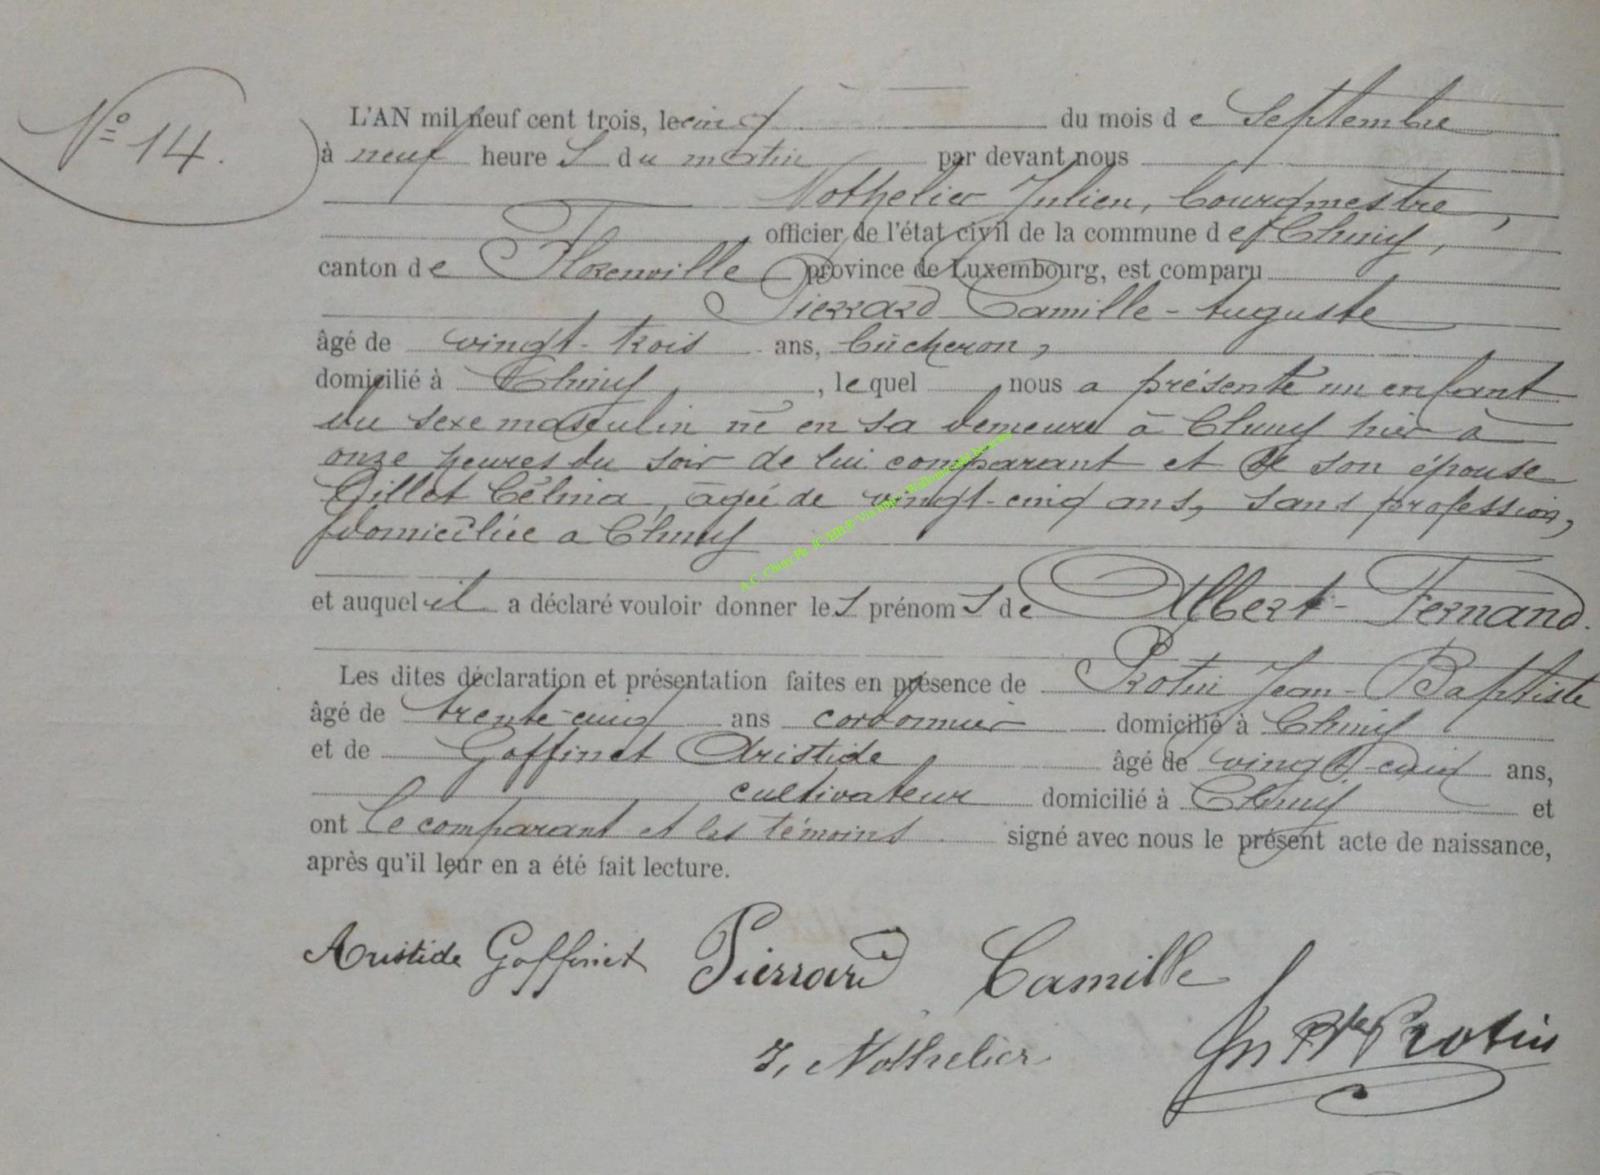 N° 14.
L'AN mil neuf cent trois, le cinq du mois de Septembre
à neuf heures du matin par devant nous
Nothelier Julien, bourgmestre,
officier de l'état civil de la commune de Chiny,
canton de Florenville province de Luxembourg, est comparu
Pierrard Camille-Auguste
âgé de vingt-trois ans, bûcheron,
domicilié à Chiny, lequel nous a présenté un enfant
du sexe masculin né en sa demeure à Chiny hier à
onze heures du soir de lui comparant et de son épouse
Gillet Célina, âgée de vingt-cinq ans, sans profession,
domiciliée à Chiny
et auquel il a déclaré vouloir donner les prénoms de Albert-Fernand.
Les dites déclaration et présentation faites en présence de Protin Jean-Baptiste
âgé de trente-cinq ans cordonnier domicilié à Chiny
et de Goffinet Aristide âgé de vingt-cinq ans,
cultivateur domicilié à Chiny et
ont le comparant et les témoins signé avec nous le présent acte de naissance,
après qu'il leur en a été fait lecture.
Aristide Goffinet Pierrard Camille
J. Nothelier Jn Bte Protin